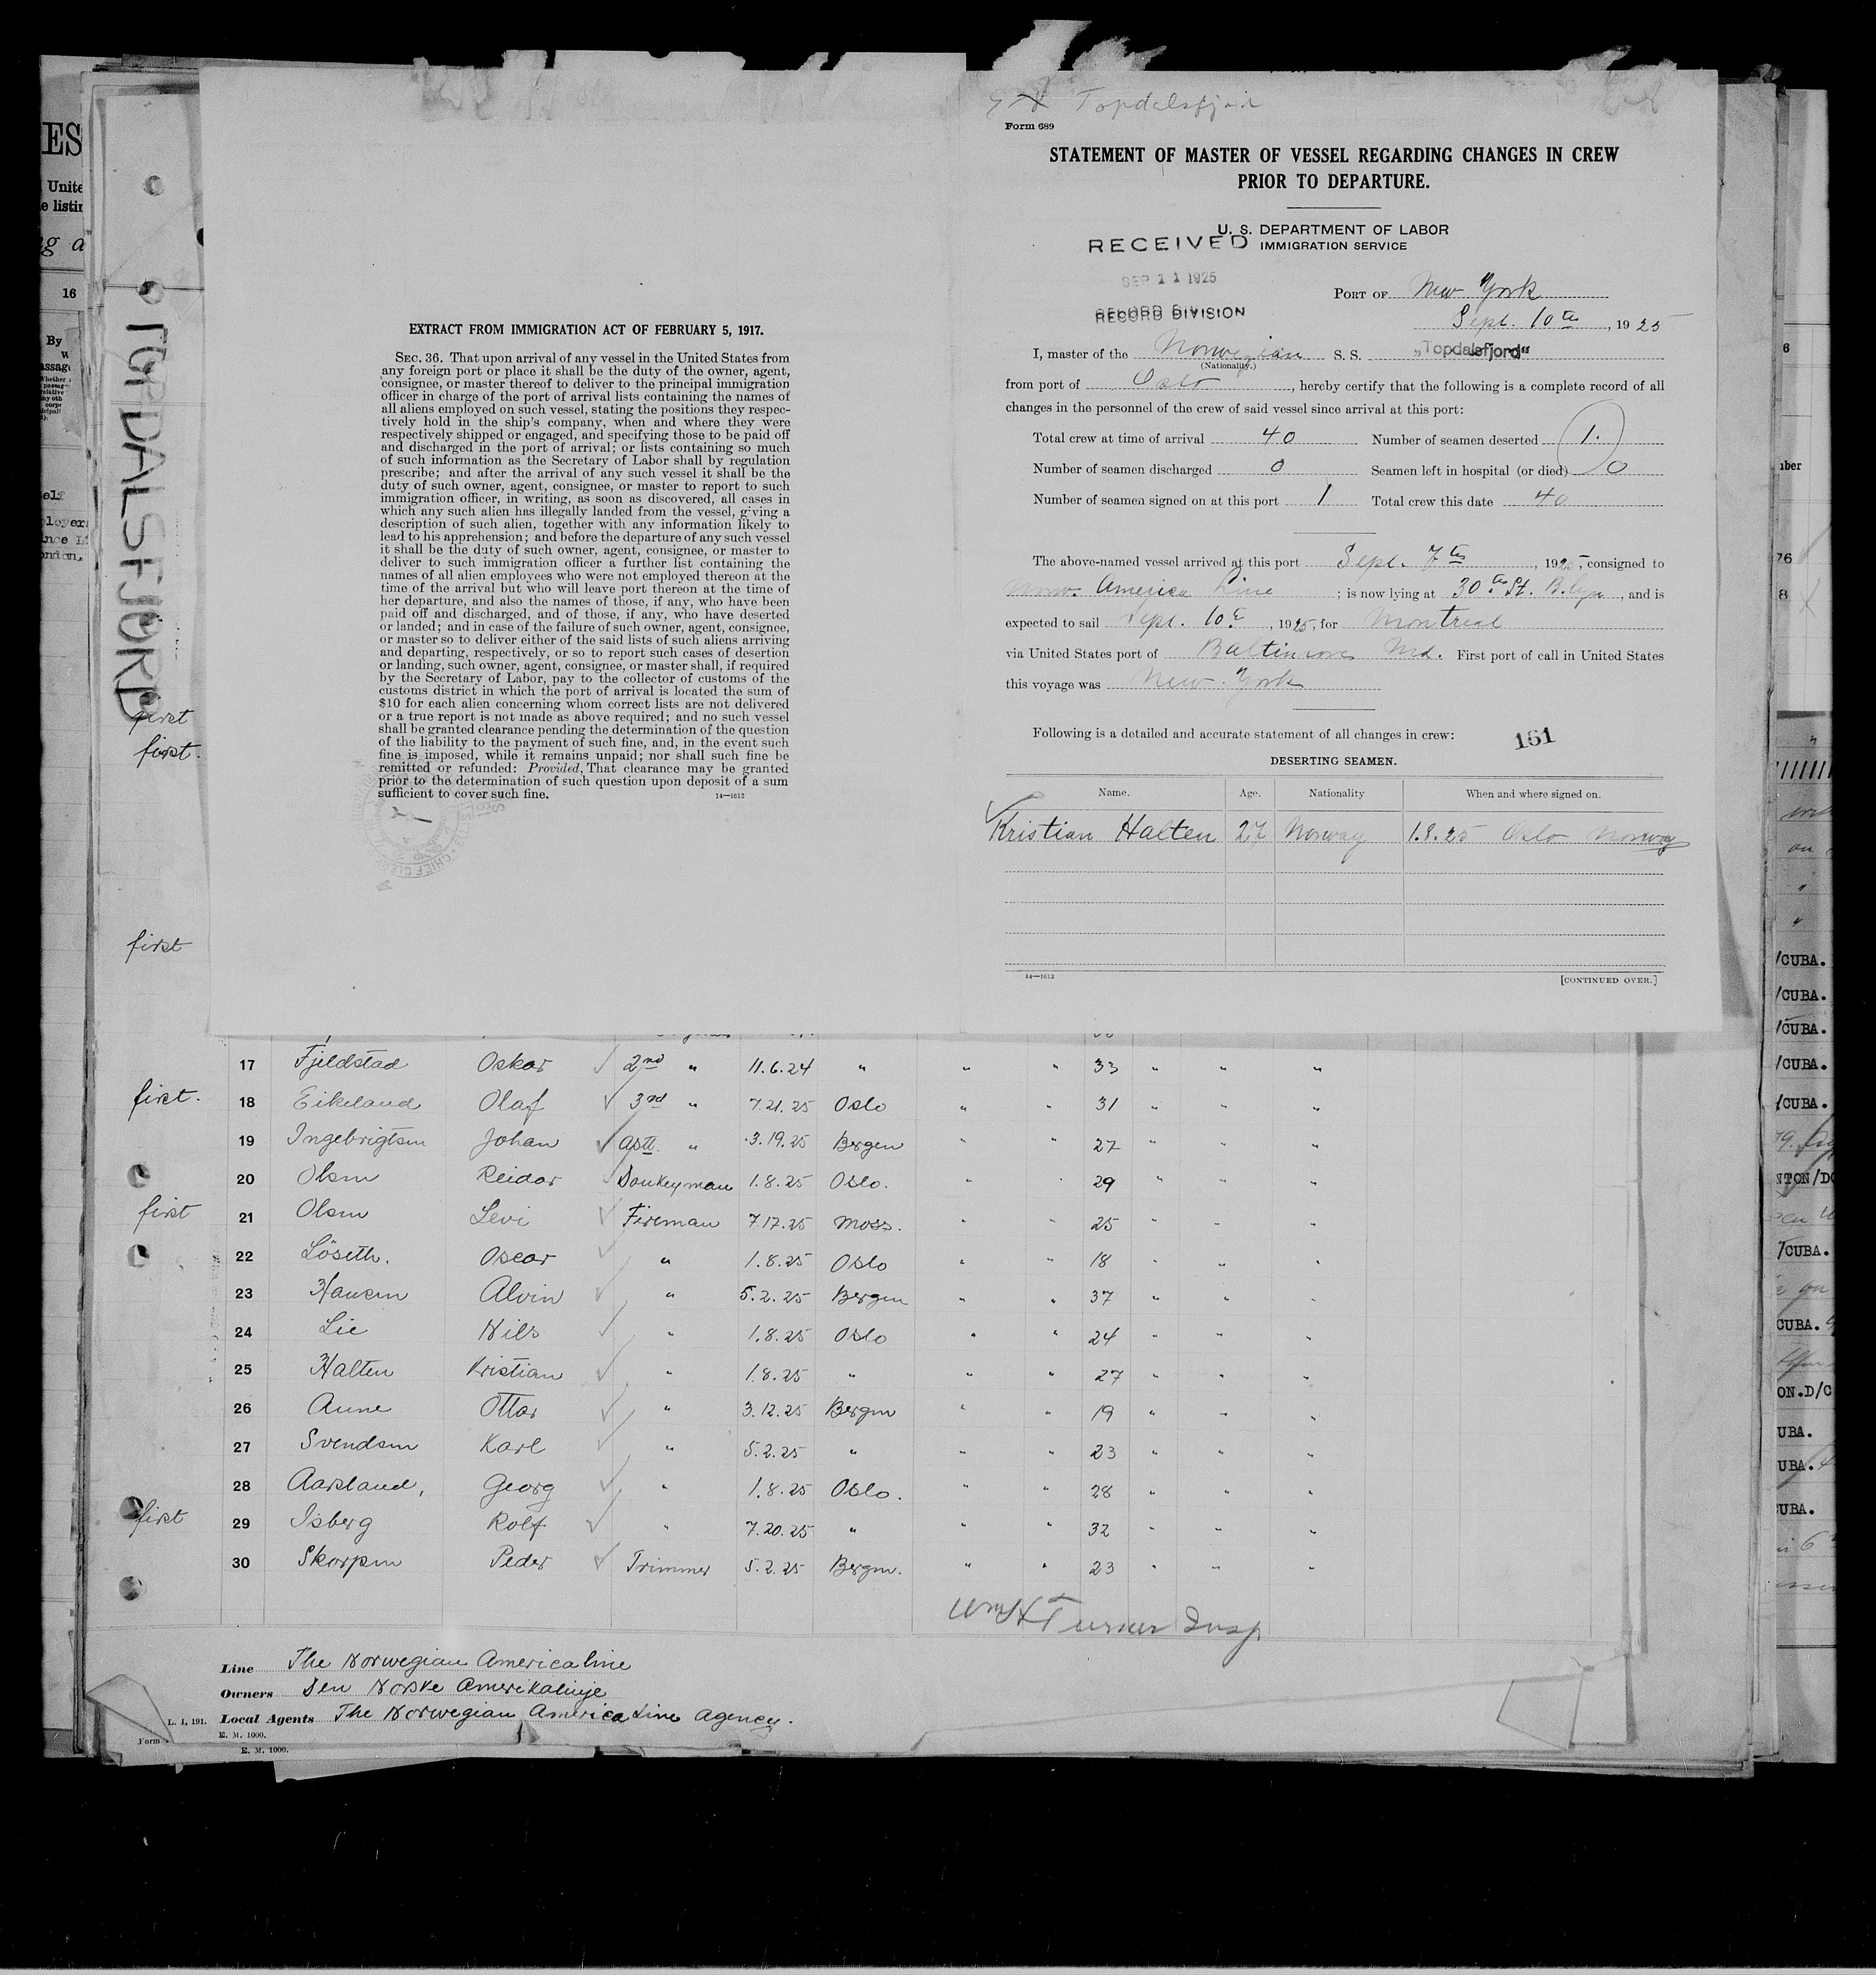 Topdalsfjord
Form 689
STATEMENT OF MASTER OF VESSEL REGARDING CHANGES IN CREW
PRIOR TO DEPARTURE.
U. S. DEPARTMENT OF LABOR
IMMIGRATION SERVICE
RECEIVED
SEP 11 1925
RECORD DIVISION
PORT OF New York
Sept. 10th, 1925
I, master of the Norwegian S. S. „Topdalsfjord"
(Nationality.)
from port of Oslo, hereby certify that the following is a complete record of all
changes in the personnel of the crew of said vessel since arrival at this port:
Total crew at time of arrival 40 Number of seamen deserted 1.
Number of seamen discharged 0 Seamen left in hospital (or died) 0
Number of seamen signed on at this port 1 Total crew this date 40
The above-named vessel arrived at this port Sept. 7th, 1925, consigned to
Norw. America Line; is now lying at 30th St. B.lyn, and is
expected to sail Sept. 10th, 1925, for Montreal
via United States port of Baltimore Md. First port of call in United States
this voyage was New York
Following is a detailed and accurate statement of all changes in crew: 161
DESERTING SEAMEN.
Name. Age. Nationality When and where signed on.
Kristian Halten 27 Norway 1.8.25 Oslo Norway
14—1613 [CONTINUED OVER.]
EXTRACT FROM IMMIGRATION ACT OF FEBRUARY 5, 1917.
SEC. 36. That upon arrival of any vessel in the United States from
any foreign port or place it shall be the duty of the owner, agent,
consignee, or master thereof to deliver to the principal immigration
officer in charge of the port of arrival lists containing the names of
all aliens employed on such vessel, stating the positions they respec-
tively hold in the ship's company, when and where they were
respectively shipped or engaged, and specifying those to be paid off
and discharged in the port of arrival; or lists containing so much
of such information as the Secretary of Labor shall by regulation
prescribe; and after the arrival of any such vessel it shall be the
duty of such owner, agent, consignee, or master to report to such
immigration officer, in writing, as soon as discovered, all cases in
which any such alien has illegally landed from the vessel, giving a
description of such alien, together with any information likely to
lead to his apprehension; and before the departure of any such vessel
it shall be the duty of such owner, agent, consignee, or master to
deliver to such immigration officer a further list containing the
names of all alien employees who were not employed thereon at the
time of the arrival but who will leave port thereon at the time of
her departure, and also the names of those, if any, who have been
paid off and discharged, and of those, if any, who have deserted
or landed; and in case of the failure of such owner, agent, consignee,
or master so to deliver either of the said lists of such aliens arriving
and departing, respectively, or so to report such cases of desertion
or landing, such owner, agent, consignee, or master shall, if required
by the Secretary of Labor, pay to the collector of customs of the
customs district in which the port of arrival is located the sum of
$10 for each alien concerning whom correct lists are not delivered
or a true report is not made as above required; and no such vessel
shall be granted clearance pending the determination of the question
of the liability to the payment of such fine, and, in the event such
fine is imposed, while it remains unpaid; nor shall such fine be
remitted or refunded: Provided, That clearance may be granted
prior to the determination of such question upon deposit of a sum
sufficient to cover such fine. 14—1613
TOPDALSFJORD
first
first.
first
17 Fjeldstad Oskar 2nd " 11.6.24 " " " 33 " " "
first. 18 Eikeland Olaf 3rd " 7.21.25 Oslo " " 31 " " "
19 Ingebrigtsen Johan Astt. " 3.19.25 Bergen " " 27 " " "
20 Olsen Reidar Donkeyman 1.8.25 Oslo. " " 29 " " "
first 21 Olsen Levi Fireman 7.17.25 Moss. " " 25 " " "
22 Löseth. Oscar " 1.8.25 Oslo " " 18 " " "
23 Hansen Alvin " 5.2.25 Bergen " " 37 " " "
24 Lie Nils " 1.8.25 Oslo " " 24 " " "
25 Halten Kristian " 1.8.25 " " " 27 " " "
26 Aune Ottar " 3.12.25 Bergen " " 19 " " "
27 Svendsen Karl " 5.2.25 " " " 23 " " "
28 Aarsland, Georg " 1.8.25 Oslo. " " 28 " " "
first 29 Isberg Rolf " 7.20.25 " " " 32 " " "
30 Skorpen Peder Trimmer 5.2.25 Bergen. " " 23 " " "
Wm H Turner Insp
Line The Norwegian Americaline
Owners Den Norske Amerikalinje
L. I, 191. Local Agents The Norwegian America Line Agency.
Form E. M. 1000.
E. M. 1000.
ES
Unite
e listin
16
By
/CUBA.
/CUBA.
/CUBA.
/CUBA.
/CUBA.
/CUBA.
CUBA.
ON.D/C
UBA.
UBA.
UBA.